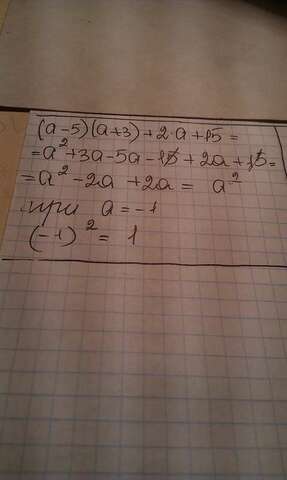 (a-5)(a+3)+2·a+15=
=a²+3a-5a-15+2a+15=
=a²-2a+2a= a²
при a=-1
(-1)²= 1